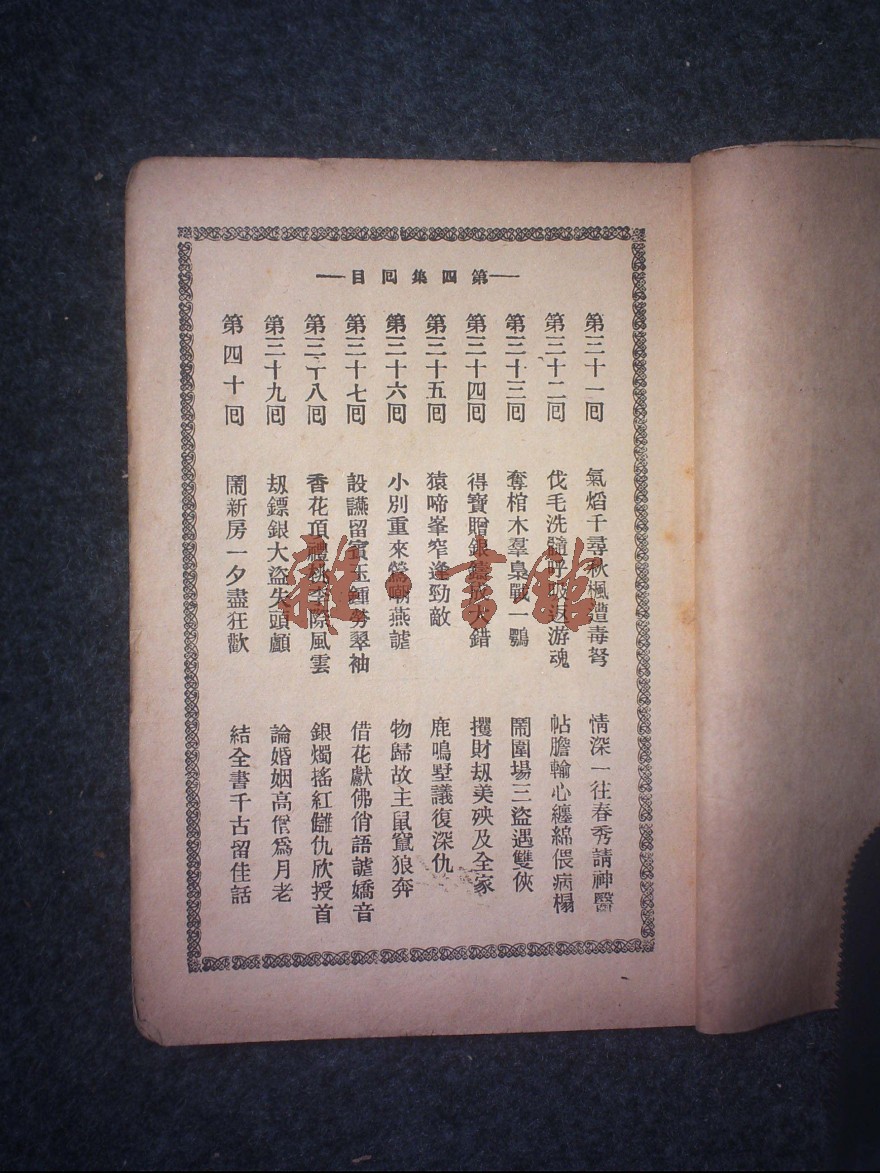 第四集囘目
第三十一囘 氣熖千尋秋楓遭毒弩 情深一往春秀請神醫
第三十二囘 伐毛洗髓呼吸返游魂 帖膽輸心纏綿偎病榻
第三十三囘 奪棺木羣梟戰一鶚 鬧圍場三盜遇雙俠
第三十四囘 得寶贈銀鑄成大錯 攫財刼美殃及全家
第三十五囘 猿啼峯窄逢勁敵 鹿鳴墅議復深仇
第三十六囘 小別重來鶯嘲燕謔 物歸故主鼠竄狼奔
第三十七囘 設讌留賓玉鍾勞翠袖 借花獻佛俏語謔嬌音
第三十八囘 香花頂禮桃李際風雲 銀燭搖紅讎仇欣授首
第三十九囘 刼鏢銀大盜失頭顱 論婚姻高僧爲月老
第四十囘 鬧新房一夕盡狂歡 結全書千古留佳話
雜·書館